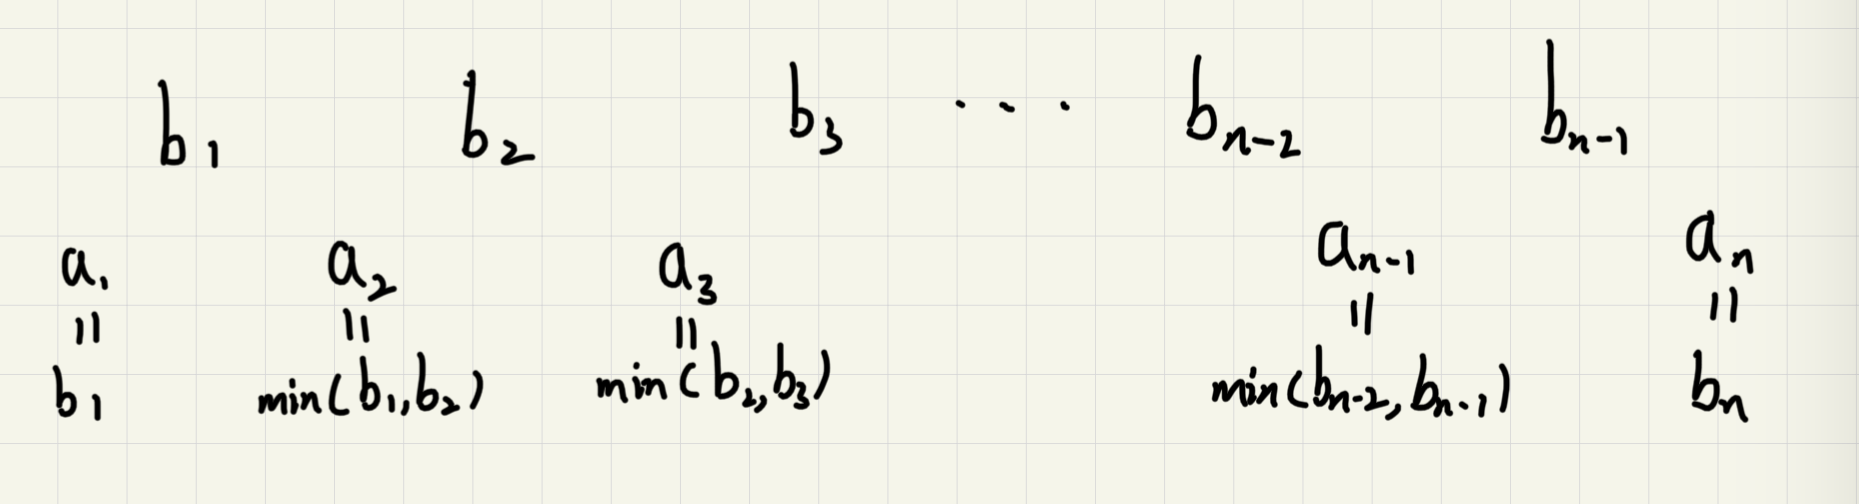 b₁ b₂ b₃ ... bₙ₋₂ bₙ₋₁
a₁ a₂ a₃ aₙ₋₁ aₙ
= = = = =
b₁ min(b₁,b₂) min(b₂,b₃) min(bₙ₋₂,bₙ₋₁) bₙ